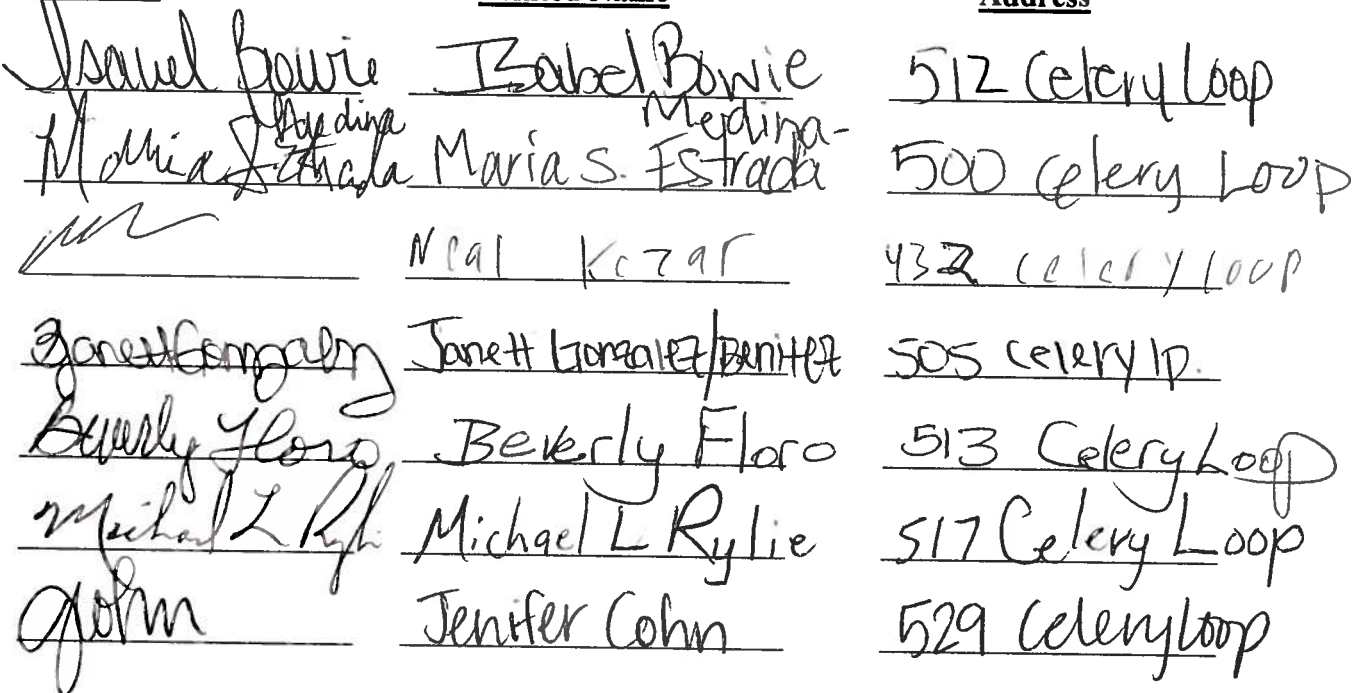 Address
Isabel Bowie Isabel Bowie 512 Celery Loop
Medina Medina-
Maria S Estrada Maria S. Estrada 500 Celery Loop
Neal 432 Celery loop
Janett Gonzalez Janett Gonzalez/Benitez 505 celery lp.
Beverly Floro Beverly Floro 513 Celery Loop
Michael L Michael L Rylie 517 Celery Loop
Jenifer Cohn 529 Celery Loop